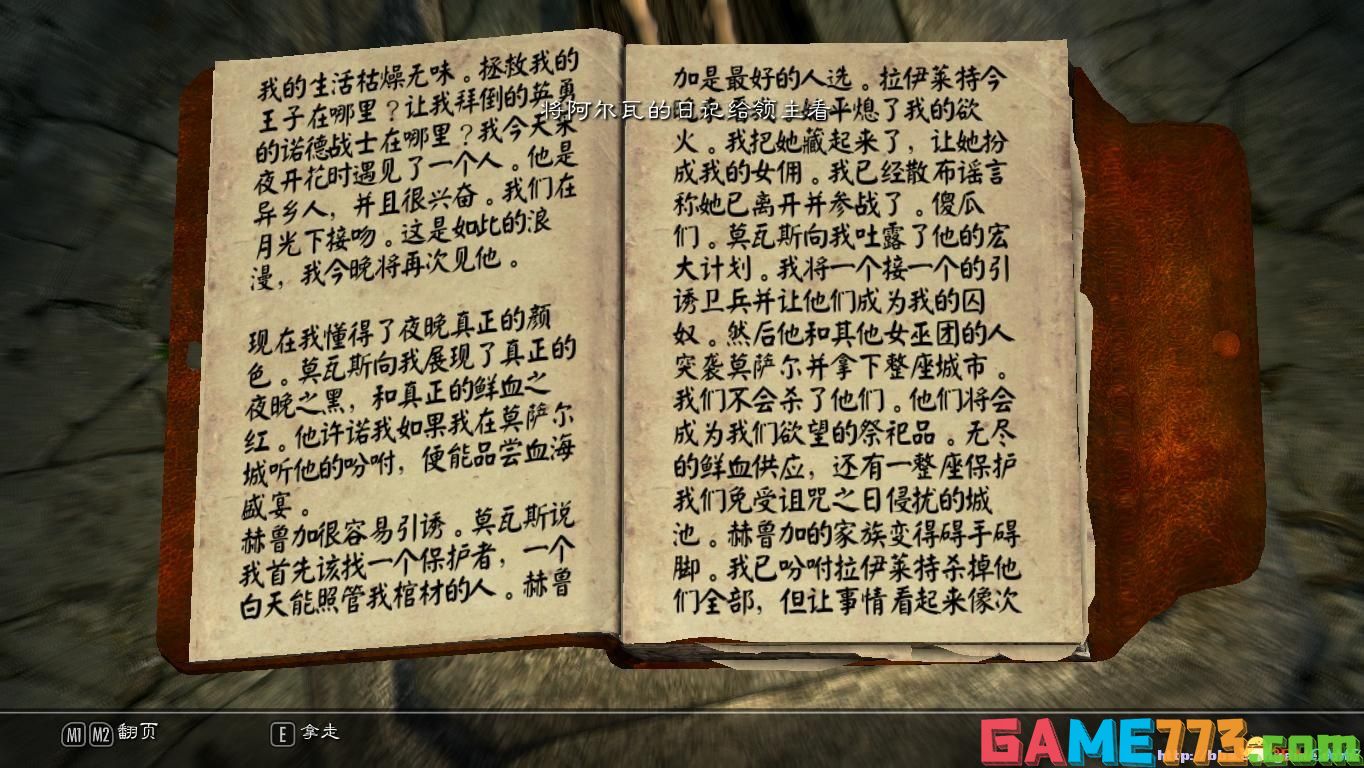 我的生活枯燥无味。拯救我的
王子在哪里？让我拜倒的英勇
的诺德战士在哪里？我今天来
夜开花时遇见了一个人。他是
异乡人，并且很兴奋。我们在
月光下接吻。这是如此的浪
漫，我今晚将再次见他。
现在我懂得了夜晚真正的颜
色。莫瓦斯向我展现了真正的
夜晚之黑，和真正的鲜血之
红。他许诺我如果我在莫萨尔
城听他的吩咐，便能品尝血海
盛宴。
赫鲁加很容易引诱。莫瓦斯说
我首先该找一个保护者，一个
白天能照管我棺材的人。赫鲁
加是最好的人选。拉伊莱特今
平熄了我的欲
火。我把她藏起来了，让她扮
成我的女佣。我已经散布谣言
称她已离开并参战了。傻瓜
们。莫瓦斯向我吐露了他的宏
大计划。我将一个接一个的引
诱卫兵并让他们成为我的囚
奴。然后他和其他女巫团的人
突袭莫萨尔并拿下整座城市。
我们不会杀了他们。他们将会
成为我们欲望的祭祀品。无尽
的鲜血供应，还有一整座保护
我们免受诅咒之日侵扰的城
池。赫鲁加的家族变得碍手碍
脚。我已吩咐拉伊莱特杀掉他
们全部，但让事情看起来像次
将阿尔瓦的日记给领主看
M1 M2 翻页
E 拿走
GAME773.com